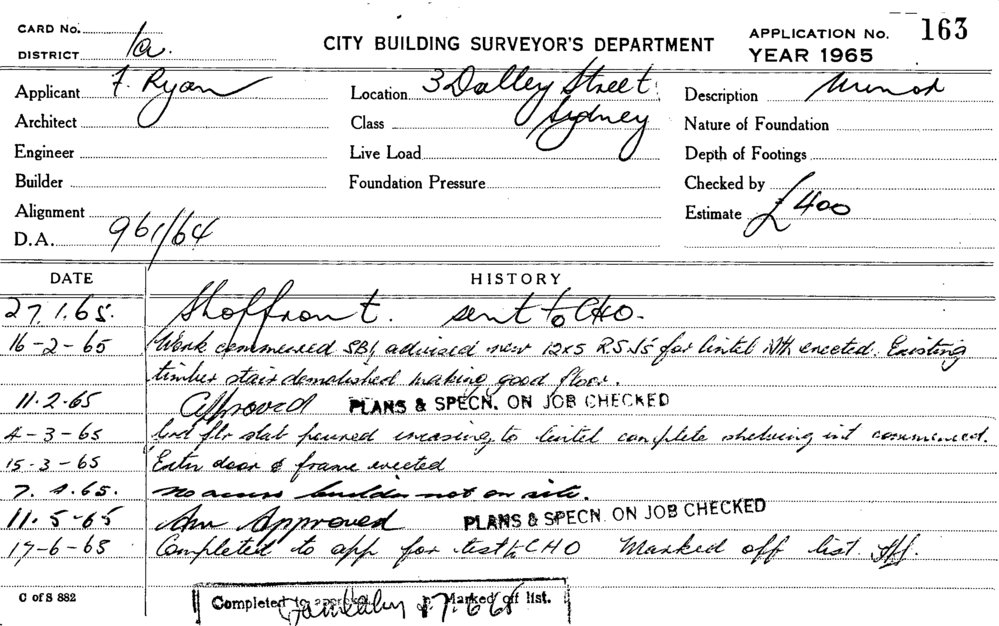 CARD No.
DISTRICT 1a.
CITY BUILDING SURVEYOR'S DEPARTMENT
APPLICATION No. 163
YEAR 1965
Applicant F. Ryan
Location 3 Dalley Street
Sydney
Description Minor
Architect
Class
Nature of Foundation
Engineer
Live Load
Depth of Footings
Builder
Foundation Pressure
Checked by
Alignment
Estimate £400
D.A. 961/64
DATE HISTORY
27.1.65. Shopfront. sent to CHO.
16-2-65 Work commenced SBI advised new 12x5 RSJs for lintel Nth erected. Existing
timber stair demolished making good floor.
11.2.65 Approved PLANS & SPECN. ON JOB CHECKED
4-3-65 flr slab poured encasing to lintel complete sheeting int commenced.
15-3-65 Extn door & frame erected
7.4.65. no access builder not on site.
11.5-65 Am Approved PLANS & SPECN. ON JOB CHECKED
17-6-65 Completed to app for test to CHO Marked off list.
C of S 882
Completed to Marked off list.
17.6.65